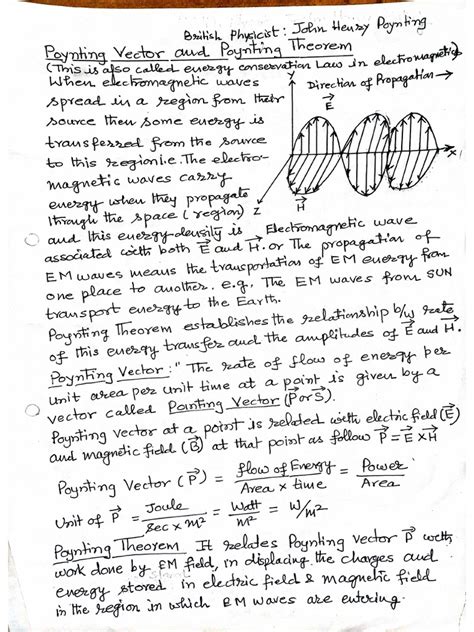 British Physicist: John Henry Poynting
Poynting Vector and Poynting Theorem
(This is also called energy conservation Law in electromagnetics)
When electromagnetic waves
spread in a region from their
source then some energy is
transferred from the source
to this region i.e. The electro-
magnetic waves carry
energy when they propagate
through the space (region)
Y
Direction of Propagation →
E⃗
X
H⃗
Z
Electromagnetic wave
and this energy density is
associated with both E⃗ and H⃗. or The propagation of
EM waves means the transportation of EM energy from
one place to another. e.g. The EM waves from SUN
transport energy to the Earth.
Poynting Theorem establishes the relationship b/w rate
of this energy transfer and the amplitudes of E⃗ and H⃗.
Poynting Vector: "The rate of flow of energy per
unit area per unit time at a point is given by a
vector called Pointing Vector (P or S).
Poynting vector at a point is related with electric field (E⃗)
and magnetic field (B⃗) at that point as follow P⃗ = E⃗ x H⃗
Poynting Vector (P⃗) = flow of Energy / Area x time = Power / Area
Unit of P⃗ = Joule / Sec x m² = Watt / m² = W/m²
Poynting Theorem It relates Poynting vector P⃗ with
work done by EM field, in displacing the charges and
energy stored in electric field & magnetic field
in the region in which EM waves are entering.